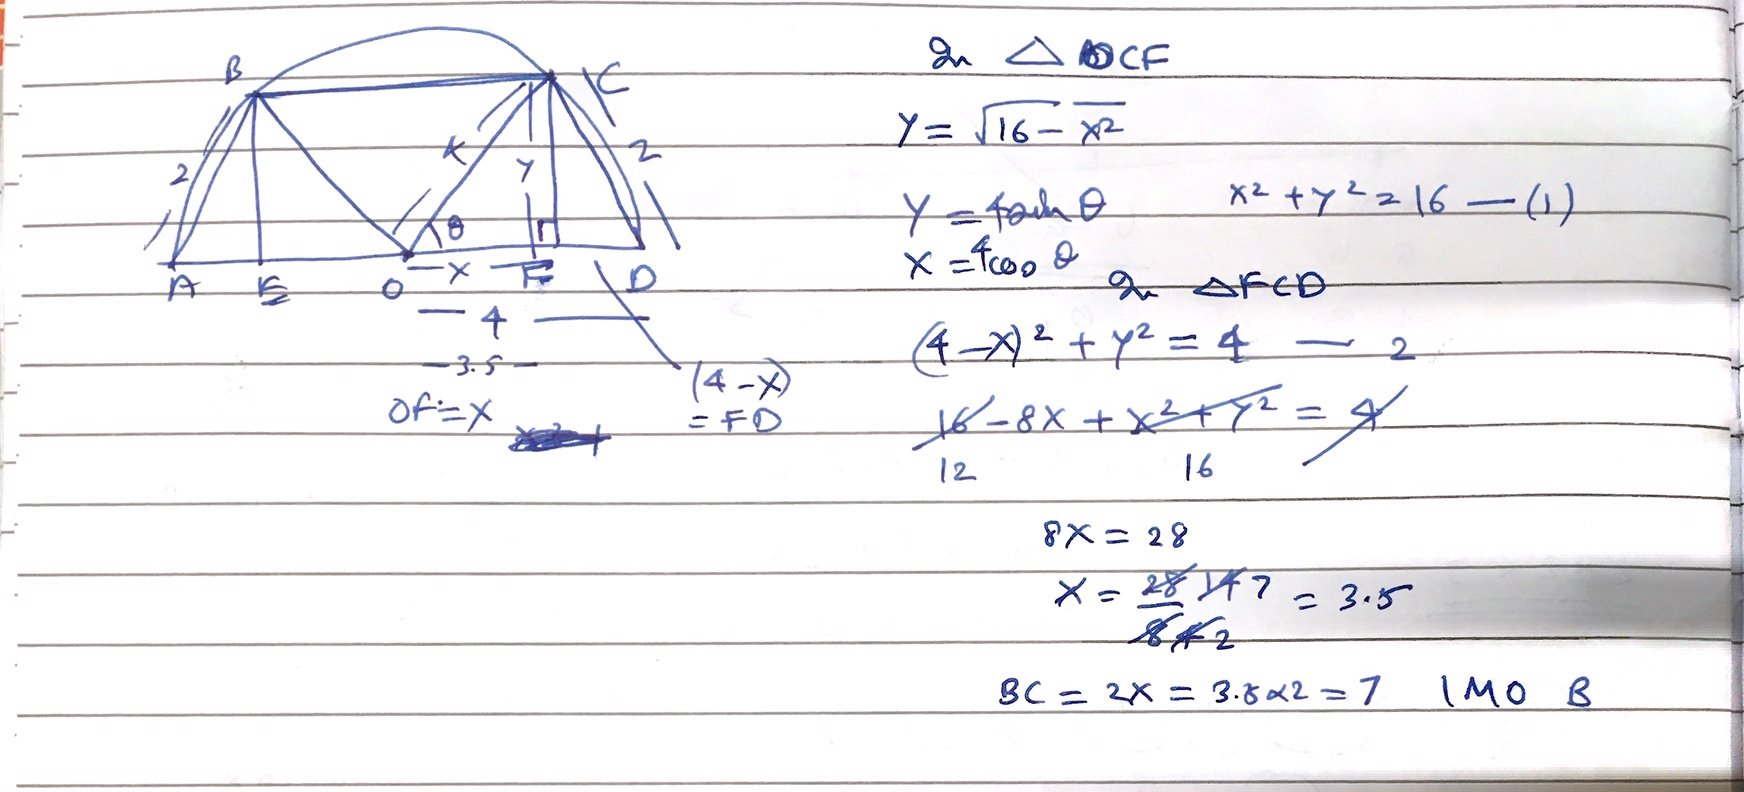 B
C
2
K
Y
2
θ
A
E
O
X
F
D
4
3.5
OF = X
(4-X)
= FD
In △ OCF
Y = √16 - x²
Y = 4 sin θ
x² + y² = 16 — (1)
X = 4 cos θ
In △FCD
(4-X)² + y² = 4 — 2
16 - 8X + x² + y² = 4
12
16
8X = 28
X = 28 14 7 = 3.5
8 4 2
BC = 2X = 3.5x2 = 7 IMO B